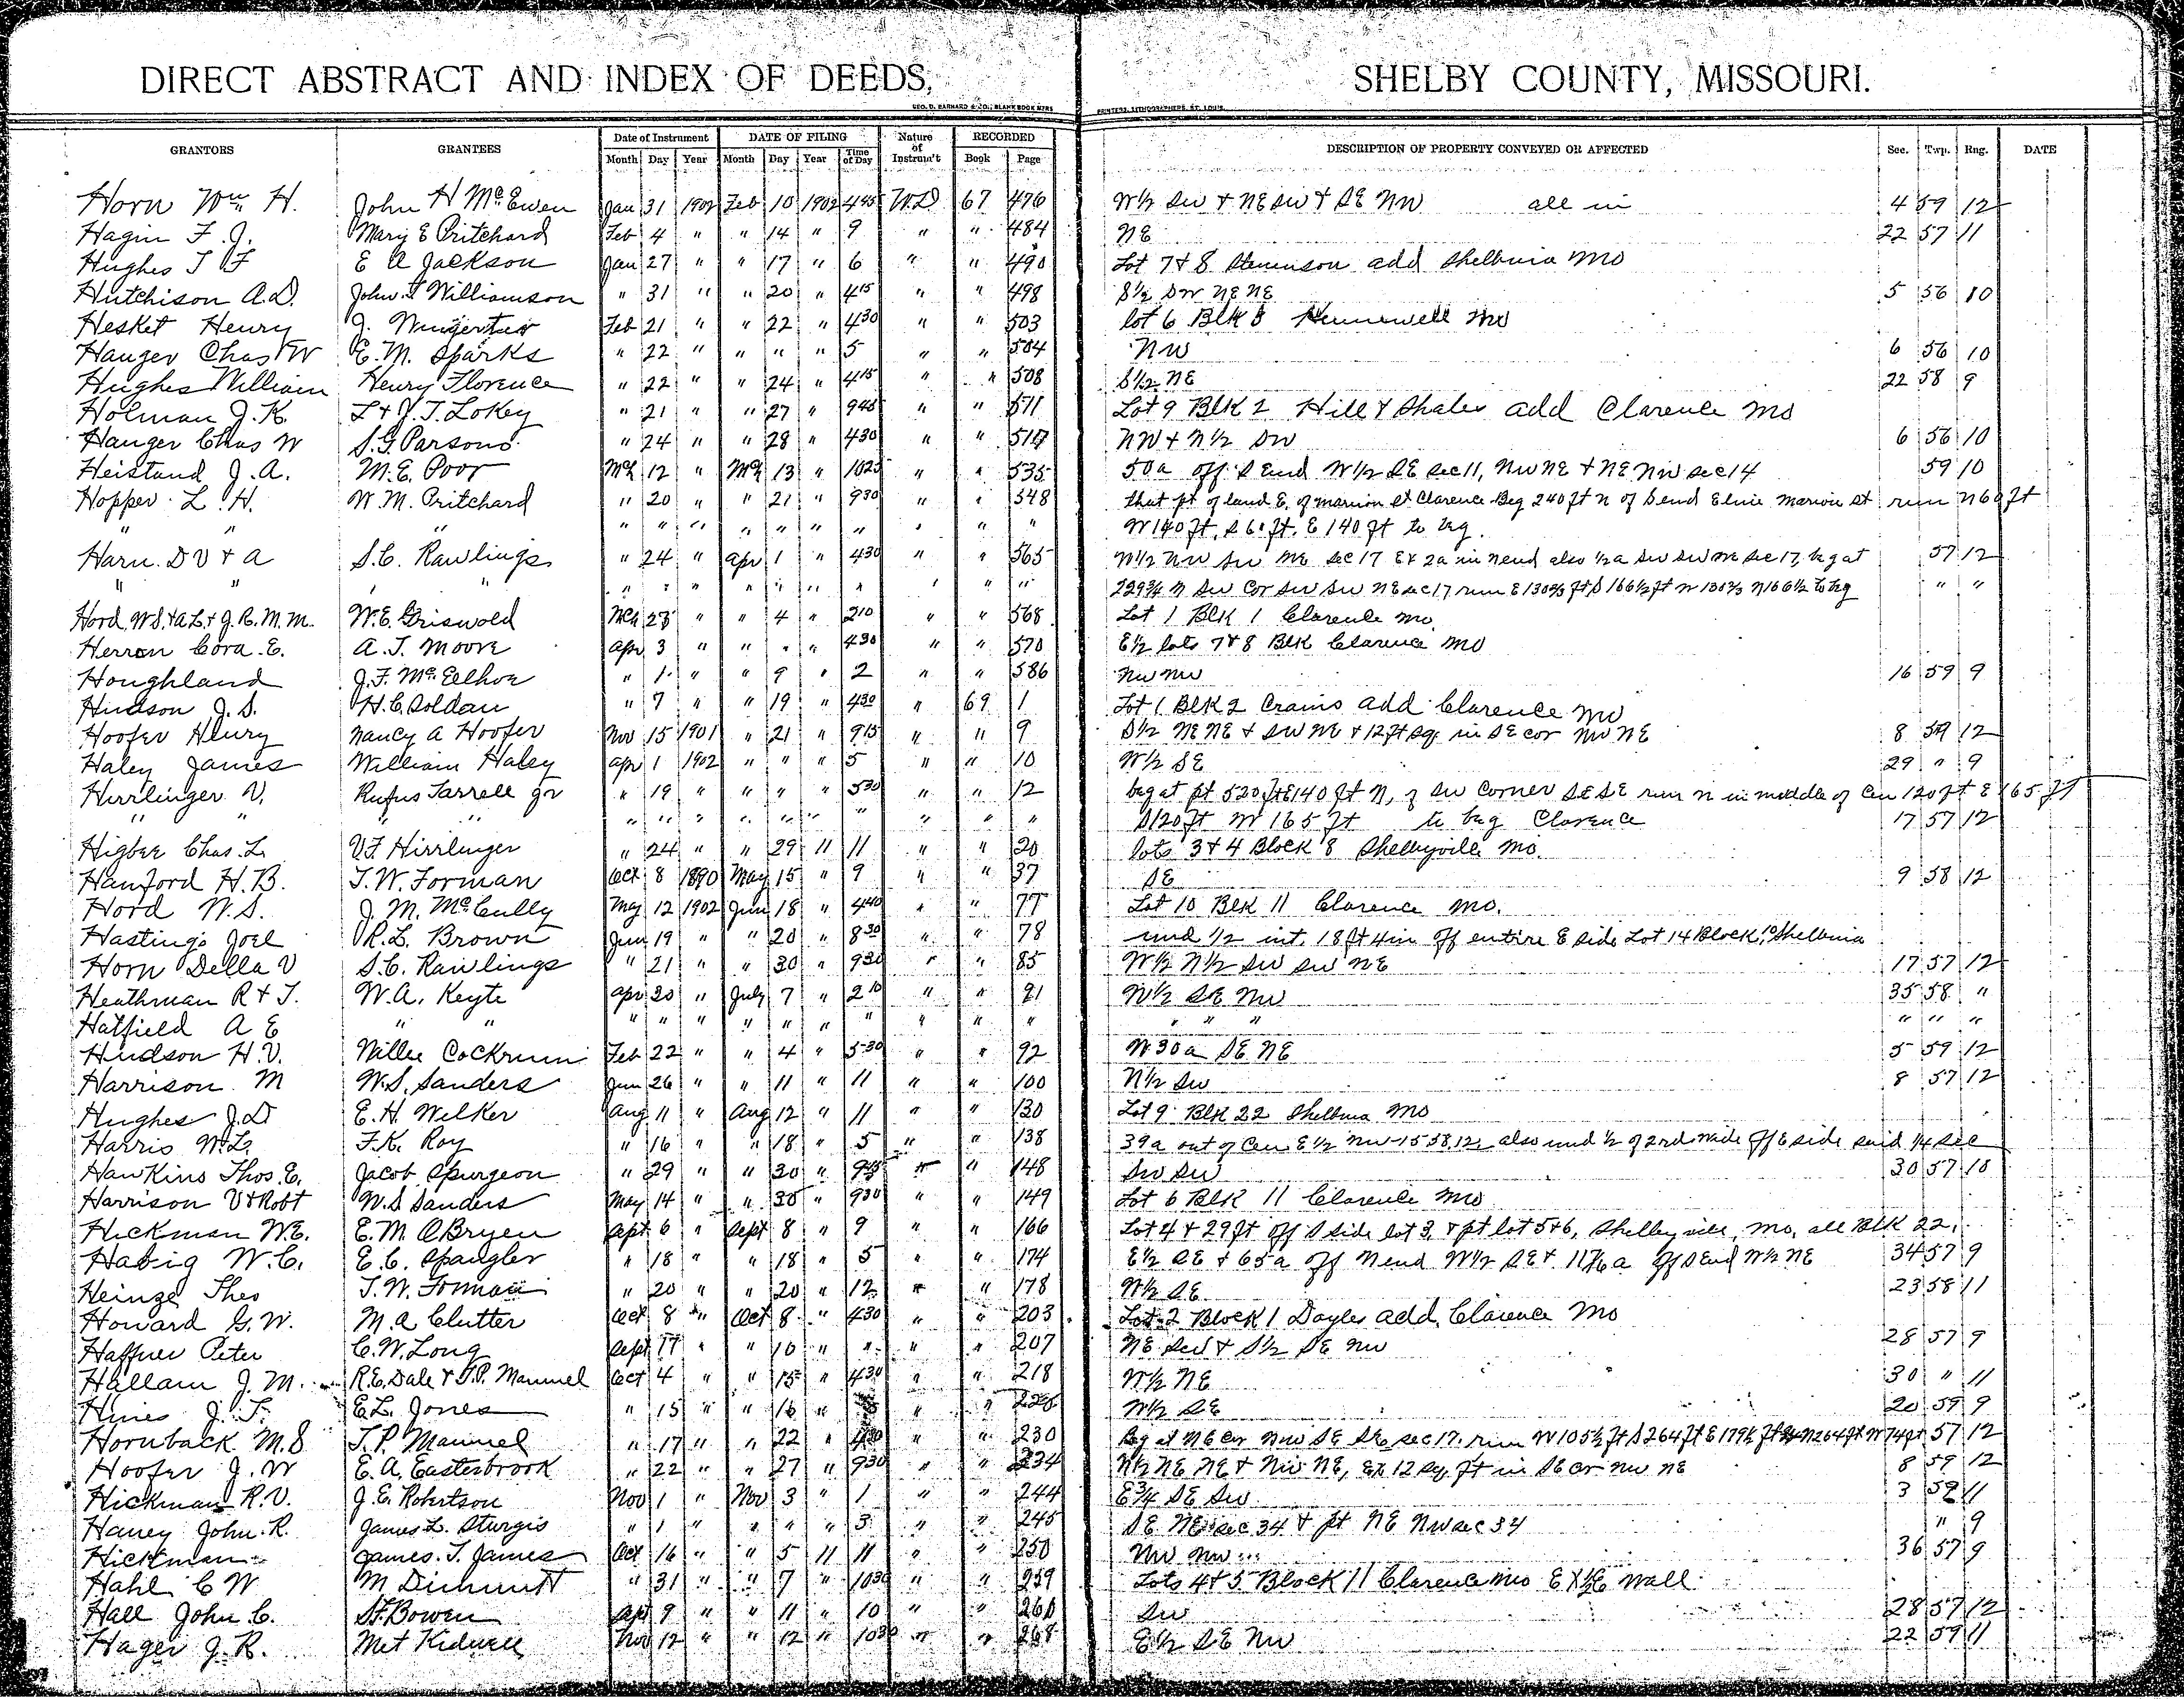 DIRECT ABSTRACT AND INDEX OF DEEDS, SHELBY COUNTY, MISSOURI.
GEO. D. BARNARD & CO., BLANK BOOK M'F'RS PRINTERS, LITHOGRAPHERS, ST. LOUIS.
GRANTORS GRANTEES Date of Instrument DATE OF FILING Nature of Instrum't RECORDED DESCRIPTION OF PROPERTY CONVEYED OR AFFECTED Sec. Twp. Rng. DATE
Month Day Year Month Day Year Time of Day Book Page
Horn Wm H. John H McEwen Jan 31 1902 Feb 10 1902 445 W.D 67 476 W½ SW & NE SW & SE NW all in 4 59 12
Hagin F. J. Mary E Pritchard Feb 4 " " 14 " 9 " " 484 NE 22 57 11
Hughes T F E A Jackson Jan 27 " " 17 " 6 " " 490 Lot 7 & 8 Stevenson add Shelbina Mo
Hutchison A.D. John Williamson " 31 " " 20 " 415 " " 498 S½ SW NE NE 5 56 10
Hesket Henry J. Feb 21 " " 22 " 430 " " 503 lot 6 Blk 8 Hunnewell Mo
Hanger Chas W E. M. Sparks " 22 " " " " 5 " " 504 NW 6 56 10
Hughes William Henry Florence " 22 " " 24 " 415 " " 508 S½ NE 22 58 9
Holman J. K. L & J. T. Lokey " 21 " " 27 " 945 " " 511 Lot 9 Blk 2 Hill & Shales add Clarence Mo
Hanger Chas W S. G. Parsons " 24 " " 28 " 430 " " 517 NW & N½ SW 6 56 10
Heistand J. A. M. E. Poor Mch 12 " Mch 13 " 1025 " " 535 50a off S End W½ SE sec 11, NW NE & NE NW sec 14 59 10
Hopper L. H. W. M. Pritchard " 20 " " 21 " 930 " " 548 that pt of land E. of Marion St Clarence Beg 240 ft N of S end E line Marion St run N 60 ft
" " " " " " " " " " " " " W 140 ft, S 60 ft. E 140 ft to beg.
Harn. D V & A S. C. Rawlings " 24 " Apr 1 " 430 " " 565 W½ NW SW NE sec 17 Ex 2a in N end also ½ a SW SW NE sec 17, beg at 57 12
" " " " " " " " " " " " 229¾ N SW Cor SW SW NE sec 17 run E 130⅔ ft S 166½ ft W 130⅔ N 166½ to beg " "
Hord, W.S. & A.L. & J. R. M. M. W. E. Griswold Mch 28 " " 4 " 210 " " 568 Lot 1 Blk 1 Clarence Mo.
Herron Cora. E. A. T. Moore Apr 3 " " " " 430 " " 570 E½ lots 7 & 8 Blk Clarence Mo
Houghland J. F. McElhoe " 1 " " 9 " 2 " " 586 NW NW 16 59 9
Hudson J. S. H. C. Soldan " 7 " " 19 " 430 " 69 1 Lot 1 Blk 2 Crains add Clarence Mo
Hoofer Henry Nancy A Hoofer Nov 15 1901 " 21 " 915 " " 9 S½ NE NE & SW NE & 12 ft sq. in SE cor NW NE 8 59 12
Haley James William Haley Apr 1 1902 " " " 5 " " 10 W½ SE 29 " 9
Hirrlinger V. Rufus Farrell Jr " 19 " " " " 530 " " 12 beg at pt 520 ft E 140 ft N, of SW Corner SE SE run N in middle of Cen 120 ft E 165 ft
" " " " " " " " " " " " " " S 120 ft W 165 ft to beg Clarence 17 57 12
Higbee Chas. L. V. F. Hirrlinger " 24 " " 29 " 11 " " 20 lots 3 & 4 Block 8 Shelbyville Mo.
Hanford H. B. T. W. Forman Oct 8 1890 May 15 " 9 " " 37 SE 9 58 12
Hord W. S. J. M. McCully May 12 1902 Jun 18 " 440 " " 77 Lot 10 Blk 11 Clarence Mo.
Hastings Joel R. L. Brown Jun 19 " " 20 " 830 " " 78 und ½ int. 18 ft 4 in off entire E side Lot 14 Block 10 Shelbina
Horn Della V S. C. Rawlings " 21 " " 30 " 930 " " 85 W½ N½ SW SW NE 17 57 12
Heathman R & T. W. A. Keyte Apr 30 " July 7 " 210 " " 91 W½ SE NW 35 58 "
Hatfield A E " " " " " " " " " " " " " " " " " " "
Hudson H. V. Willie Cockrum Feb 22 " " 4 " 530 " " 92 W 30a SE NE 5 59 12
Harrison M W. S. Sanders Jun 26 " " 11 " 11 " " 100 N½ SW 8 57 12
Hughes J. D E. H. Welker Aug 11 " Aug 12 " 11 " " 130 Lot 9 Blk 22 Shelbina Mo
Harris W. L. F. K. Roy " 16 " " 18 " 5 " " 138 39a out of Cen E½ NW-15 58 12, also und ½ of 2 rds wide off E side said ¼ sec
Hawkins Thos. E. Jacob Spurgeon " 29 " " 30 " 945 " " 148 SW SW 30 57 10
Harrison V & Robt W. S Sanders May 14 " " 30 " 930 " " 149 Lot 6 Blk 11 Clarence Mo
Hickman W. E. E. M. O'Bryen Sept 6 " Sept 8 " 9 " " 166 Lot 4 & 29 ft off S side lot 3, & pt lot 5 & 6, Shelbyville, Mo, all Blk 22.
Habig W. C. E. C. Spangler " 18 " " 18 " 5 " " 174 E½ SE & 65a off N end W½ SE & off S End W½ NE 34 57 9
Heinze Theo T. W. Forman " 20 " " 20 " 12 " " 178 W½ SE 23 58 11
Howard G. W. M. A Clutter Oct 8 " Oct 8 " 430 " " 203 Lot 2 Block 1 Doyles add, Clarence Mo
Haffner Peter C. W. Long Sept 17 " " 10 " " " " 207 NE SW & S½ SE NW 28 57 9
Hallam J. M. R. E. Dale & T. P. Manuel Oct 4 " " 15 " 430 " " 218 W½ NE 30 " 11
Hines J. T. E L. Jones " 15 " " 16 " " " W½ SE 20 59 9
Hornback M. S T. P. Manuel " 17 " " 22 " 430 " " 230 Beg at NE Cor NW SE sec 17. run W 105½ ft S 264 ft E 179½ ft N 264 ft W 74 ft 57 12
Hoofer J. W E. A. Easterbrook " 22 " " 27 " 930 " " 234 N½ NE NE & NW NE, Ex 12 sq ft in SE cor NW NE 8 59 12
Hickman R. V. J. E. Robertson Nov 1 " Nov 3 " 1 " " 244 E¾ SE SW 3 59 11
Haney John. R. James L. Sturgis " 1 " " " " 3 " " 245 SE NE sec 34 & pt NE NW sec 34 " 9
Hickman James. T. James Oct 16 " " 5 " 11 " " 250 NW NW 36 57 9
Hahl C W M Dimmitt " 31 " " 7 " 1030 " " 259 Lots 4 & 5 Block 11 Clarence Mo Ex wall
Hall John C. S. F. Bowen Apr 9 " " 11 " 10 " " 261 SW 28 57 12
Hager J. R. Met Kidwell Nov 12 " " 12 " 1030 " " 268 E½ SE NW 22 59 11